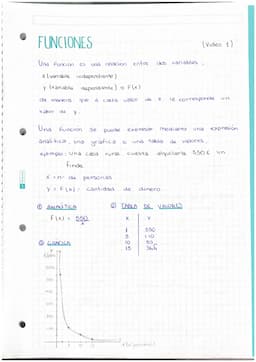 FUNCIONES
(Video 1)
Una función es una relación entre dos variables,
x (variable independiente)
y (variable dependiente) o F(x)
de manera que a cada valor de x le corresponde un
valor de y.
Una función se puede expresar mediante una expresión
analítica, una gráfica o una tabla de valores.
ejemplo: Una casa rural cuesta alquilarla 550 € un
finde
x = nº de personas
y = F(x) = cantidad de dinero
① ANALÍTICA
F(x) = 550
x
② TABLA DE VALORES
x y
1 550
5 110
10 55
15
③ GRÁFICA